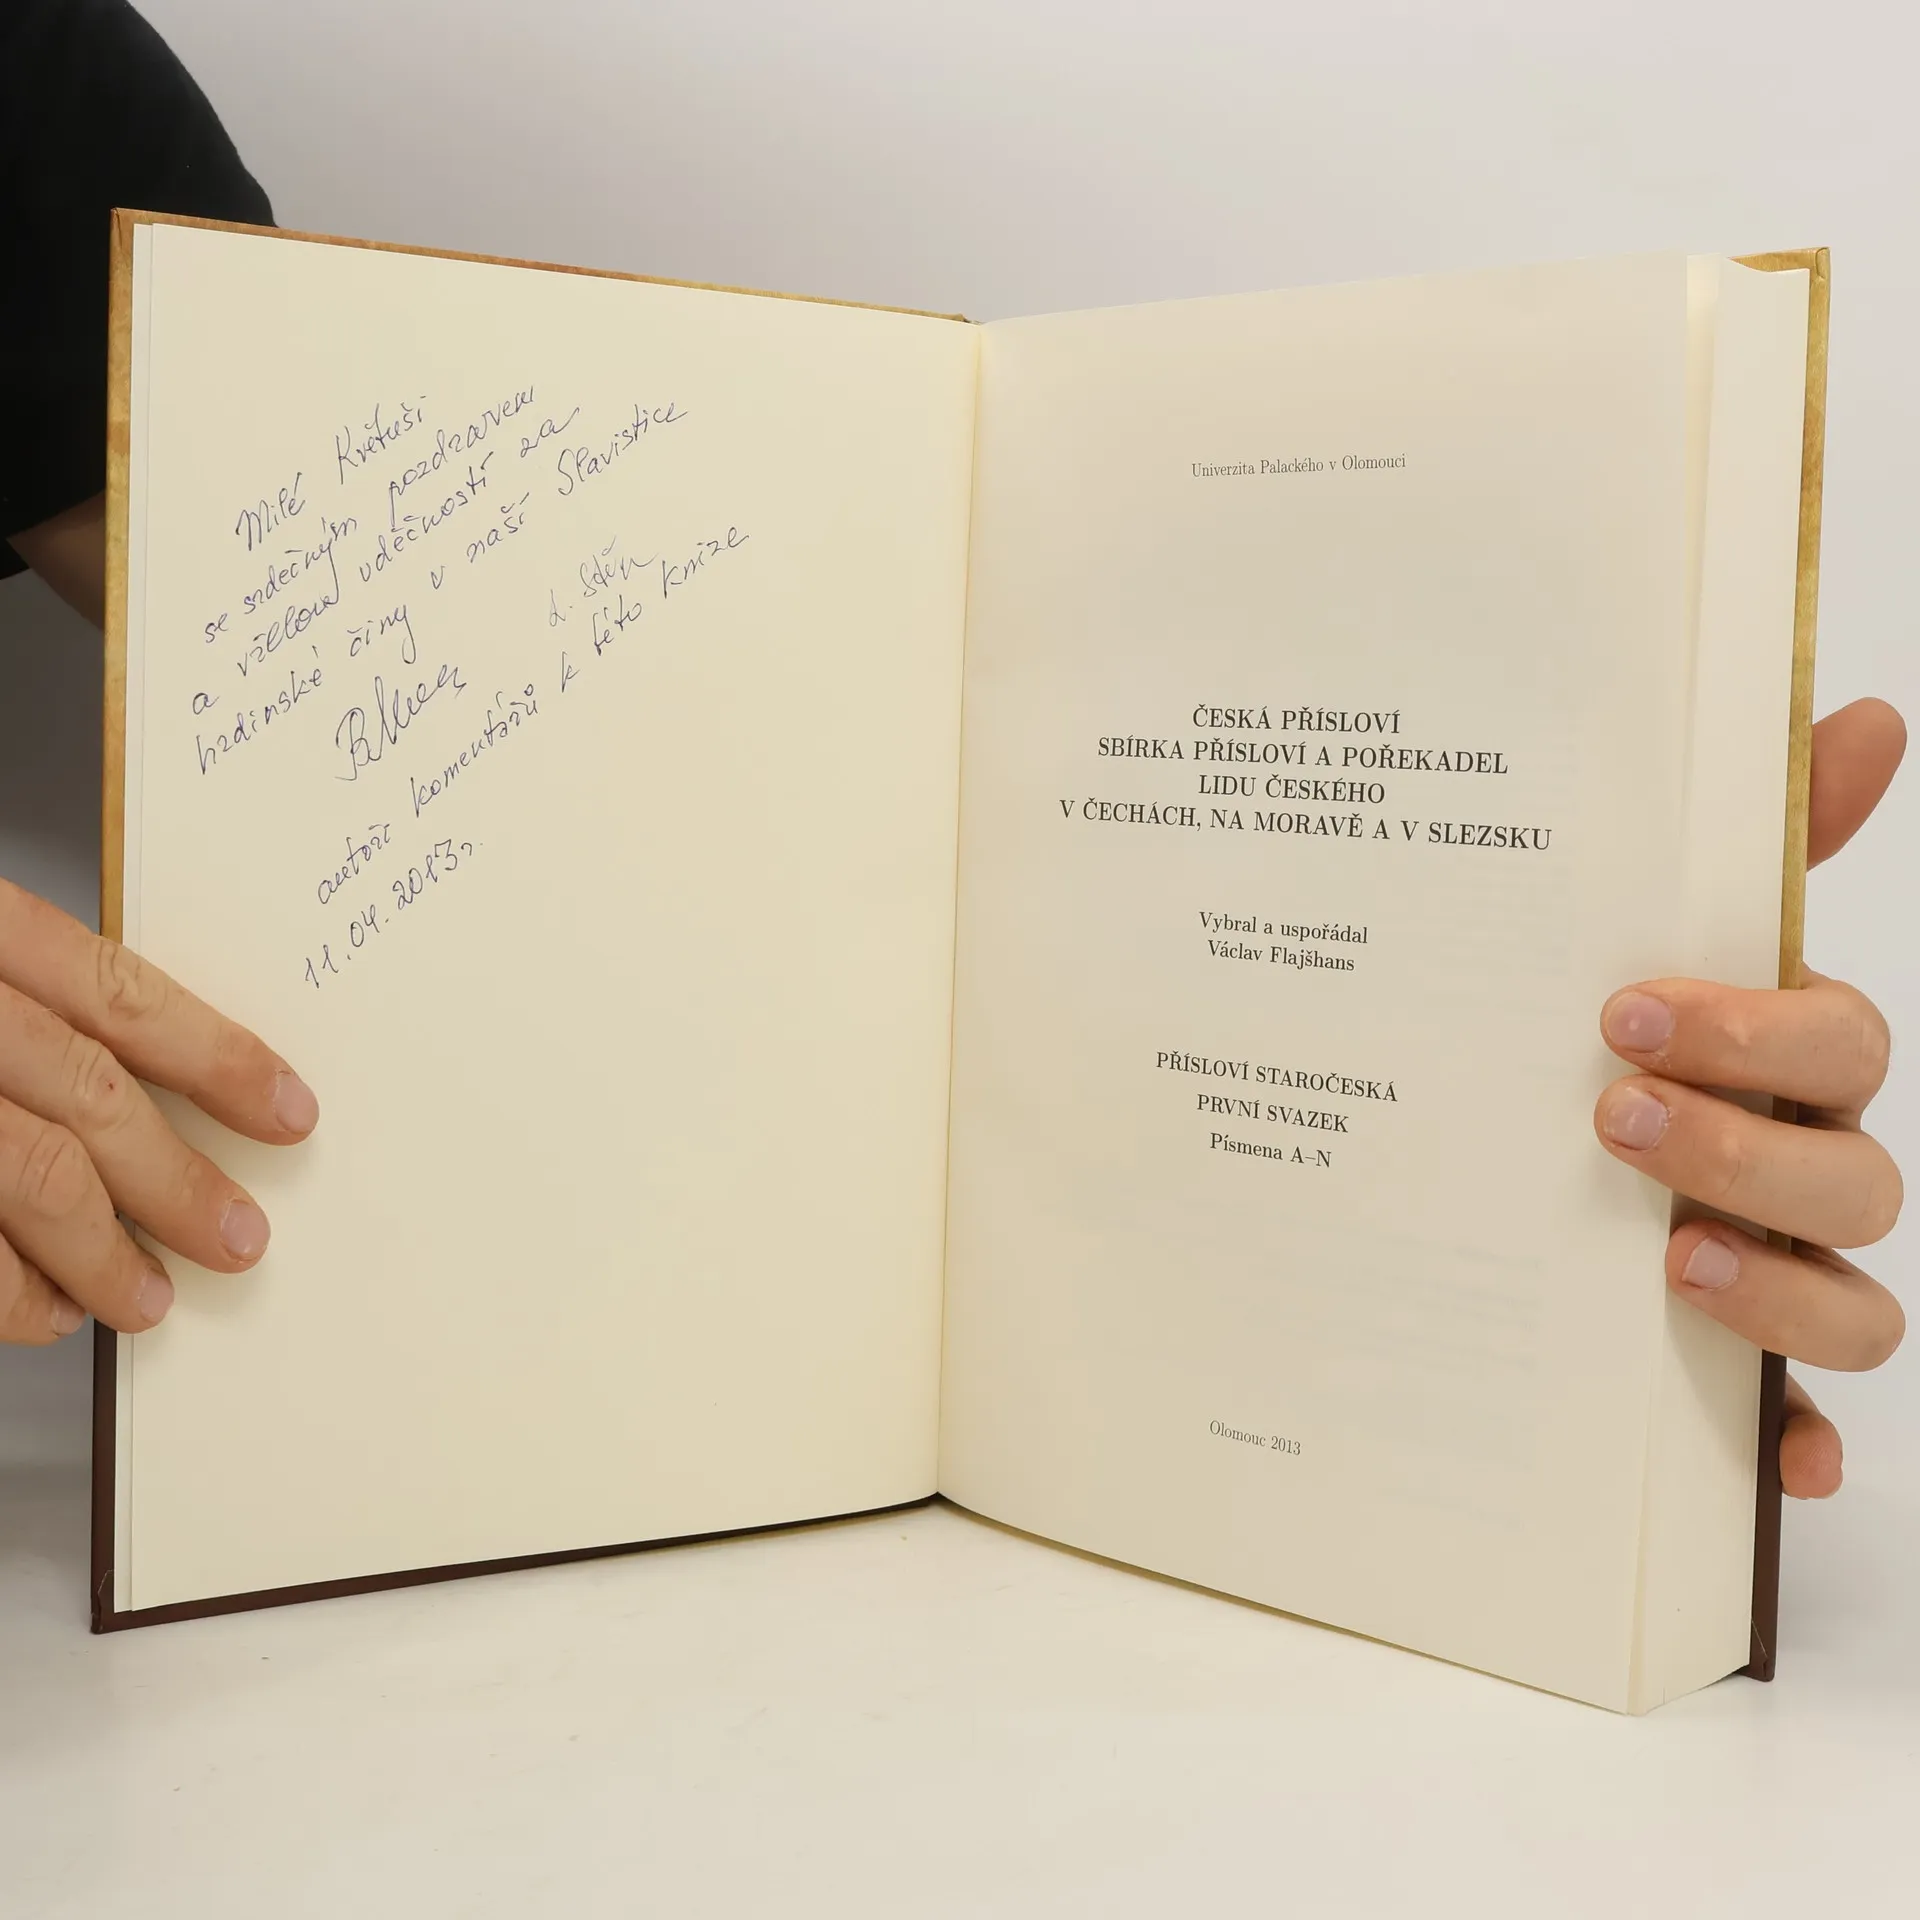 Milé Květuši
se srdečným pozdravem
a vřelou vděčností za
hrdinské činy v naší Slavistice
L. Stěp
autoři komentářů k této knize
11.04.2013r.
Univerzita Palackého v Olomouci
ČESKÁ PŘÍSLOVÍ
SBÍRKA PŘÍSLOVÍ A POŘEKADEL
LIDU ČESKÉHO
V ČECHÁCH, NA MORAVĚ A V SLEZSKU
Vybral a uspořádal
Václav Flajšhans
PŘÍSLOVÍ STAROČESKÁ
PRVNÍ SVAZEK
Písmena A–N
Olomouc 2013